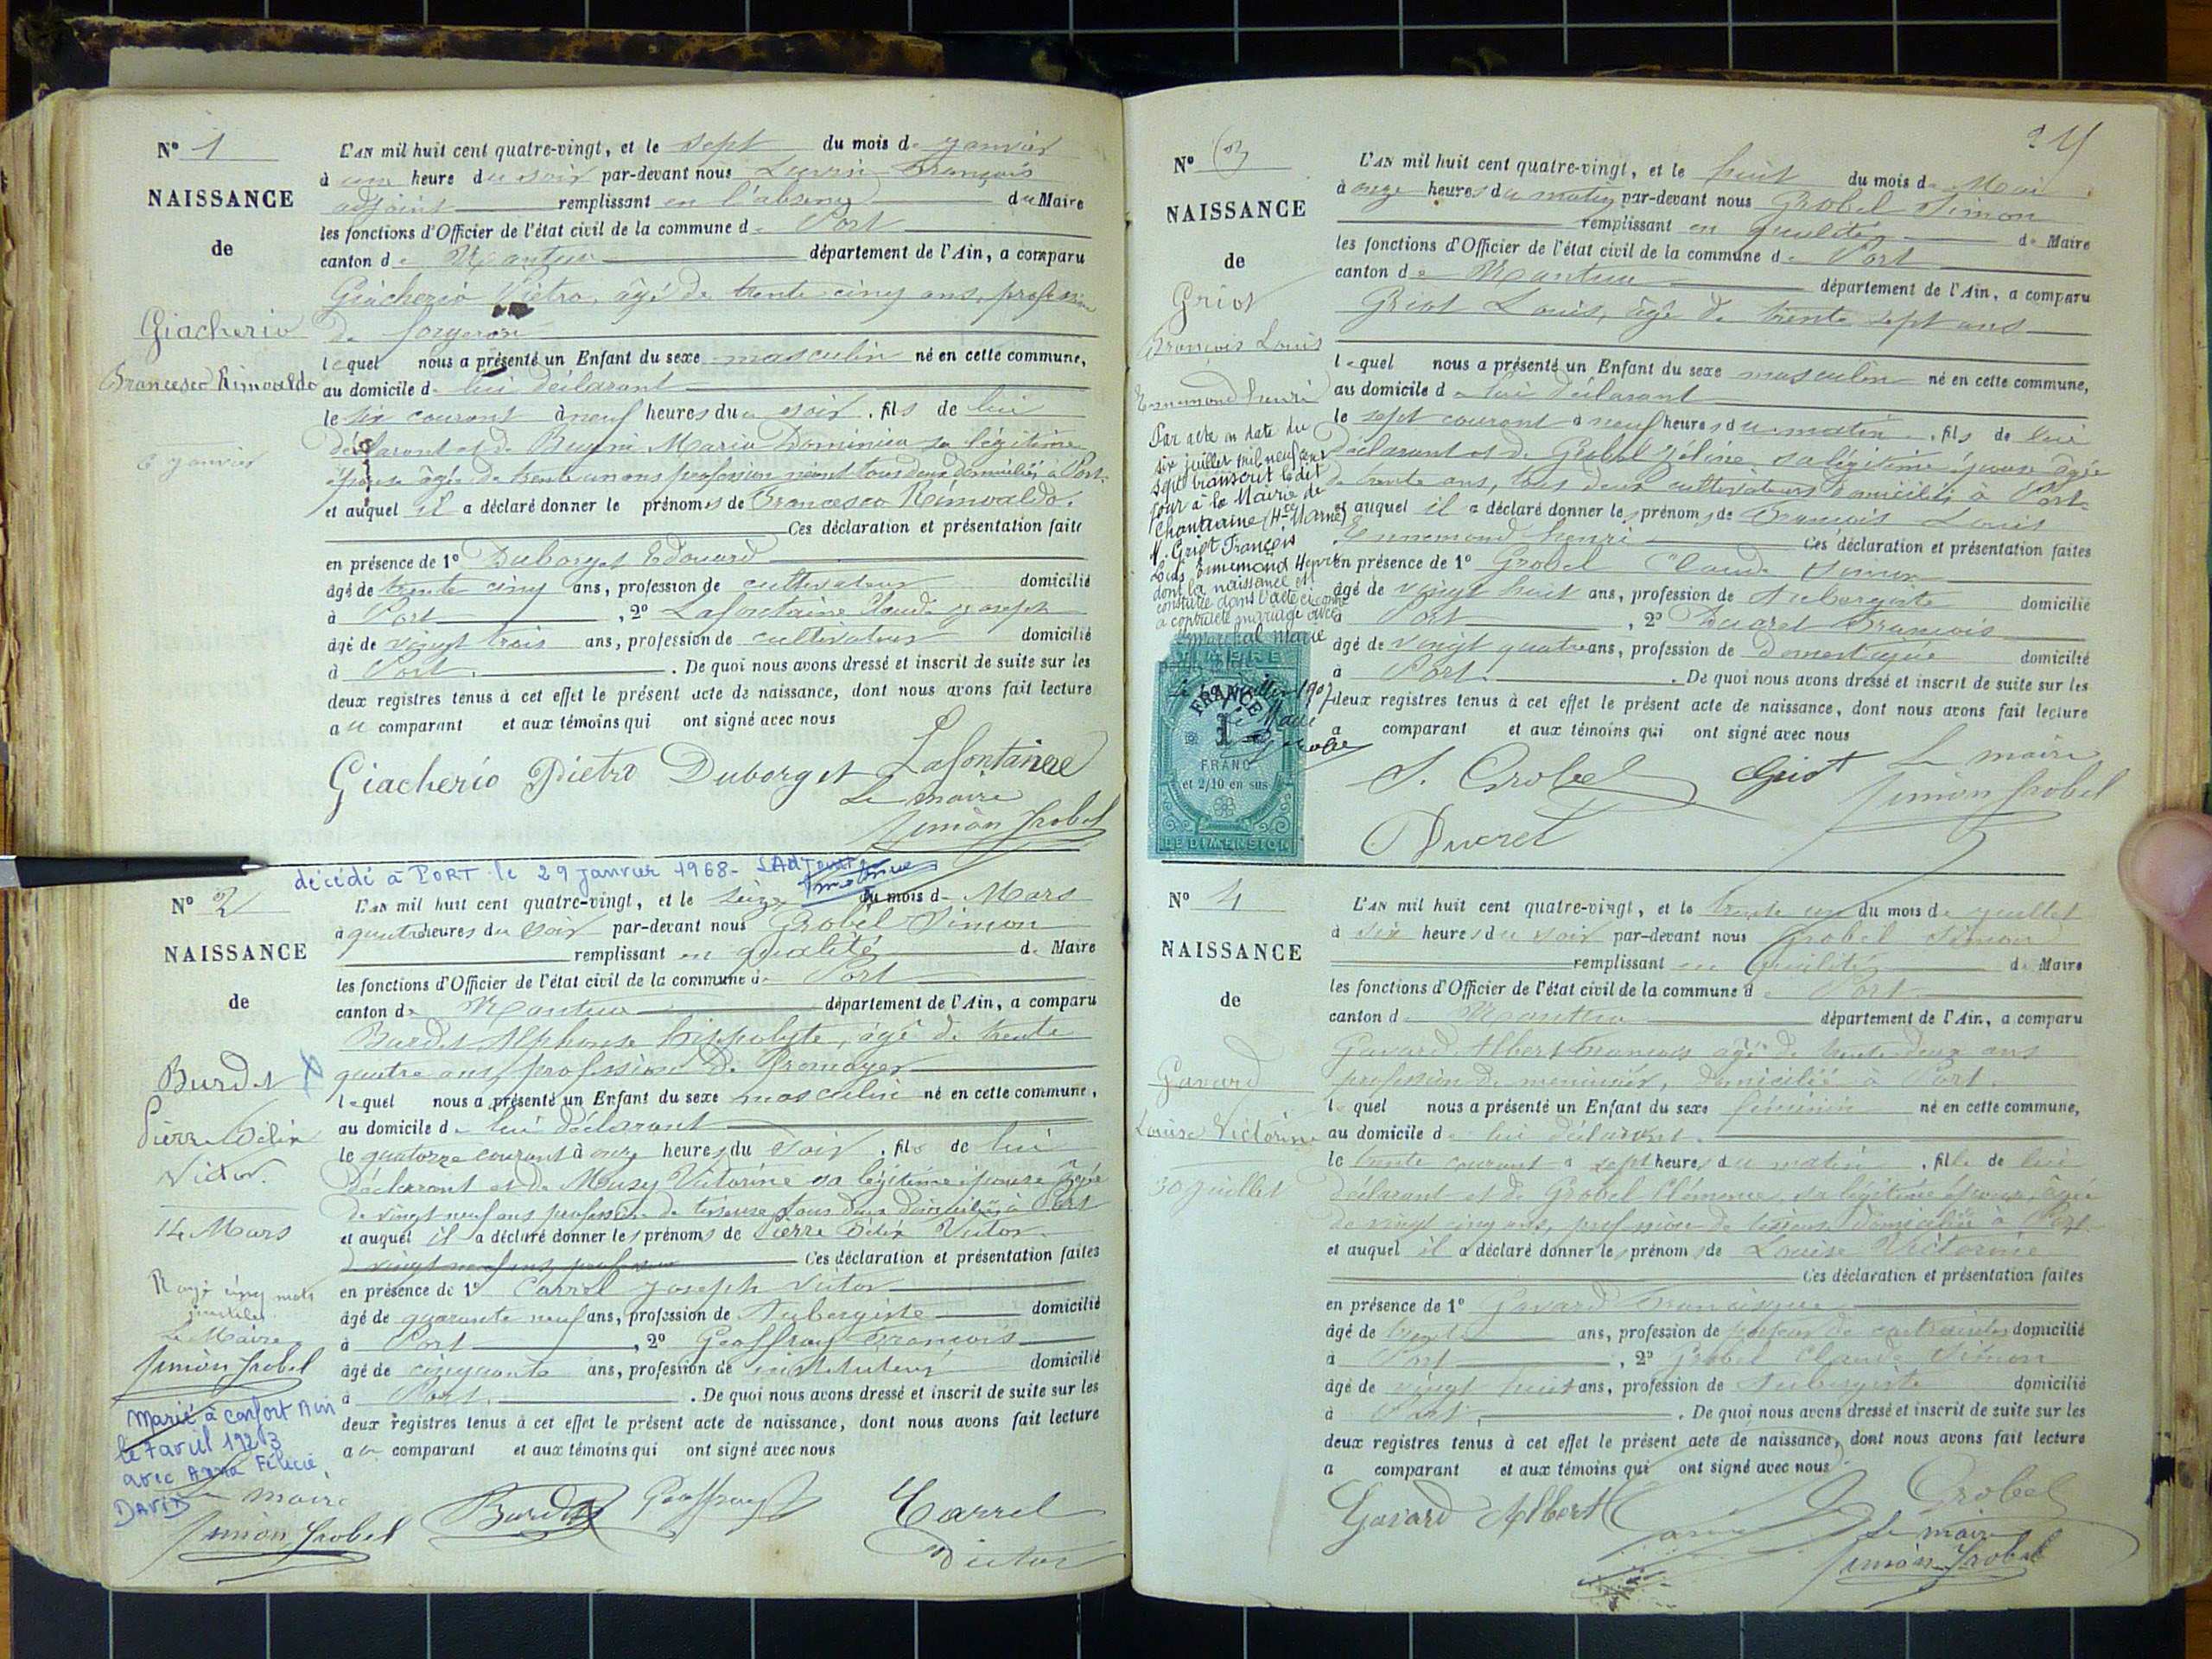 N° 1
NAISSANCE
de
Giacherio
Francesco Rimoaldo
6 janvier
L'AN mil huit cent quatre-vingt, et le sept du mois de janvier
à une heure du soir par-devant nous François
adjoint remplissant en l'absence du Maire
les fonctions d'Officier de l'état civil de la commune de Port
canton de Nantua département de l'Ain, a comparu
Giacherio Pietro, âgé de trente cinq ans, profession
de forgeron
lequel nous a présenté un Enfant du sexe masculin né en cette commune,
au domicile de lui déclarant
le six courant à neuf heures du soir, fils de lui
déclarant et de Maria Dominica sa légitime
épouse âgée de trente un ans profession néant tous deux domiciliés à Port.
et auquel il a déclaré donner le prénoms de Francesco Rimoaldo.
Ces déclaration et présentation faite
en présence de 1° Duborget Edouard
âgé de trente cinq ans, profession de cultivateur domicilié
à Port, 2° Lafontaine Claude Joseph
âgé de vingt trois ans, profession de cultivateur domicilié
à Port. De quoi nous avons dressé et inscrit de suite sur les
deux registres tenus à cet effet le présent acte de naissance, dont nous avons fait lecture
au comparant et aux témoins qui ont signé avec nous
Giacherio Pietro Duborget Lafontaine
Le maire
Simon Grobel
décédé à PORT le 29 janvier 1968 - L'Adjoint
N° 2
NAISSANCE
de
Burdet
Pierre Félix
Victor.
14 Mars
Rayé cinq mots
nuls
Le Maire
Simon Grobel
Marié à Confort Ain
le 7 avril 1923
avec Anna Félicie,
DAVID
Le maire
Simon Grobel
L'AN mil huit cent quatre-vingt, et le seize du mois de Mars
à quatre heures du soir par-devant nous Grobel Simon
remplissant en qualité de Maire
les fonctions d'Officier de l'état civil de la commune de Port
canton de Nantua département de l'Ain, a comparu
Burdet Alphonse hippolyte, âgé de trente
quatre ans, profession de fromager
lequel nous a présenté un Enfant du sexe masculin né en cette commune,
au domicile de lui déclarant
le quatorze courant à onze heures du soir, fils de lui
déclarant et de Musy Victorine sa légitime épouse âgée
de vingt neuf ans profession de tisseuse tous deux domiciliés à Port
et auquel il a déclaré donner les prénoms de Pierre Félix Victor.
Ces déclaration et présentation faites
en présence de 1° Carrel Joseph Victor
âgé de quarante neuf ans, profession de Aubergiste domicilié
à Port, 2° Geoffray François
âgé de cinquante ans, profession de instituteur domicilié
à Port. De quoi nous avons dressé et inscrit de suite sur les
deux registres tenus à cet effet le présent acte de naissance, dont nous avons fait lecture
au comparant et aux témoins qui ont signé avec nous
Burdet Geoffray Carrel
Victor
N° 3
NAISSANCE
de
Griot
François Louis
Ennemond henri
Par acte en date du
six juillet mil neuf cent
sept transcrit ledit
jour à la Mairie de
Chantraine (Hte Marne)
M. Griot François
Louis Ennemond Henri
dont la naissance est
constatée dans l'acte ci contre
a contracté mariage avec
Maréchal Marie
FRANCE
1
FRANC
et 2/10 en sus
DE DIMENSION
L'AN mil huit cent quatre-vingt, et le huit du mois de Mai
à onze heures du matin par-devant nous Grobel Simon
remplissant en qualité de Maire
les fonctions d'Officier de l'état civil de la commune de Port
canton de Nantua département de l'Ain, a comparu
Griot Louis, âgé de trente sept ans
lequel nous a présenté un Enfant du sexe masculin né en cette commune,
au domicile de lui déclarant
le sept courant à neuf heures du matin, fils de lui
déclarant et de Grobel Zéline sa légitime épouse âgée
de trente ans, tous deux cultivateurs domiciliés à Port
et auquel il a déclaré donner les prénoms de François Louis
Ennemond henri Ces déclaration et présentation faites
en présence de 1° Grobel Claude Simon
âgé de vingt huit ans, profession de Aubergiste domicilié
à Port, 2° Ducret François
âgé de vingt quatre ans, profession de Domestique domicilié
à Port. De quoi nous avons dressé et inscrit de suite sur les
deux registres tenus à cet effet le présent acte de naissance, dont nous avons fait lecture
a comparant et aux témoins qui ont signé avec nous
S. Grobel Griot Le maire
Simon Grobel
Ducret
N° 4
NAISSANCE
de
Gavard
Louise Victorine
30 juillet
L'AN mil huit cent quatre-vingt, et le trente un du mois de juillet
à six heures du soir par-devant nous Grobel Simon
remplissant en qualité de Maire
les fonctions d'Officier de l'état civil de la commune de Port
canton de Nantua département de l'Ain, a comparu
Gavard Albert François âgé de trente deux ans
profession de menuisier, domicilié à Port.
lequel nous a présenté un Enfant du sexe féminin né en cette commune,
au domicile de lui déclarant.
le trente courant à sept heures du matin, fille de lui
déclarant et de Grobel Clémence, sa légitime épouse, âgée
de vingt cinq ans, profession de tisseuse domiciliée à Port
et auquel il a déclaré donner le prénom de Louise Victorine
Ces déclaration et présentation faites
en présence de 1° Gavard Francisque
âgé de trente ans, profession de domicilié
à Port, 2° Grobel Claude Simon
âgé de vingt huit ans, profession de Aubergiste domicilié
à Port. De quoi nous avons dressé et inscrit de suite sur les
deux registres tenus à cet effet le présent acte de naissance, dont nous avons fait lecture
a comparant et aux témoins qui ont signé avec nous
Gavard Albert Grobel
Le maire
Simon Grobel